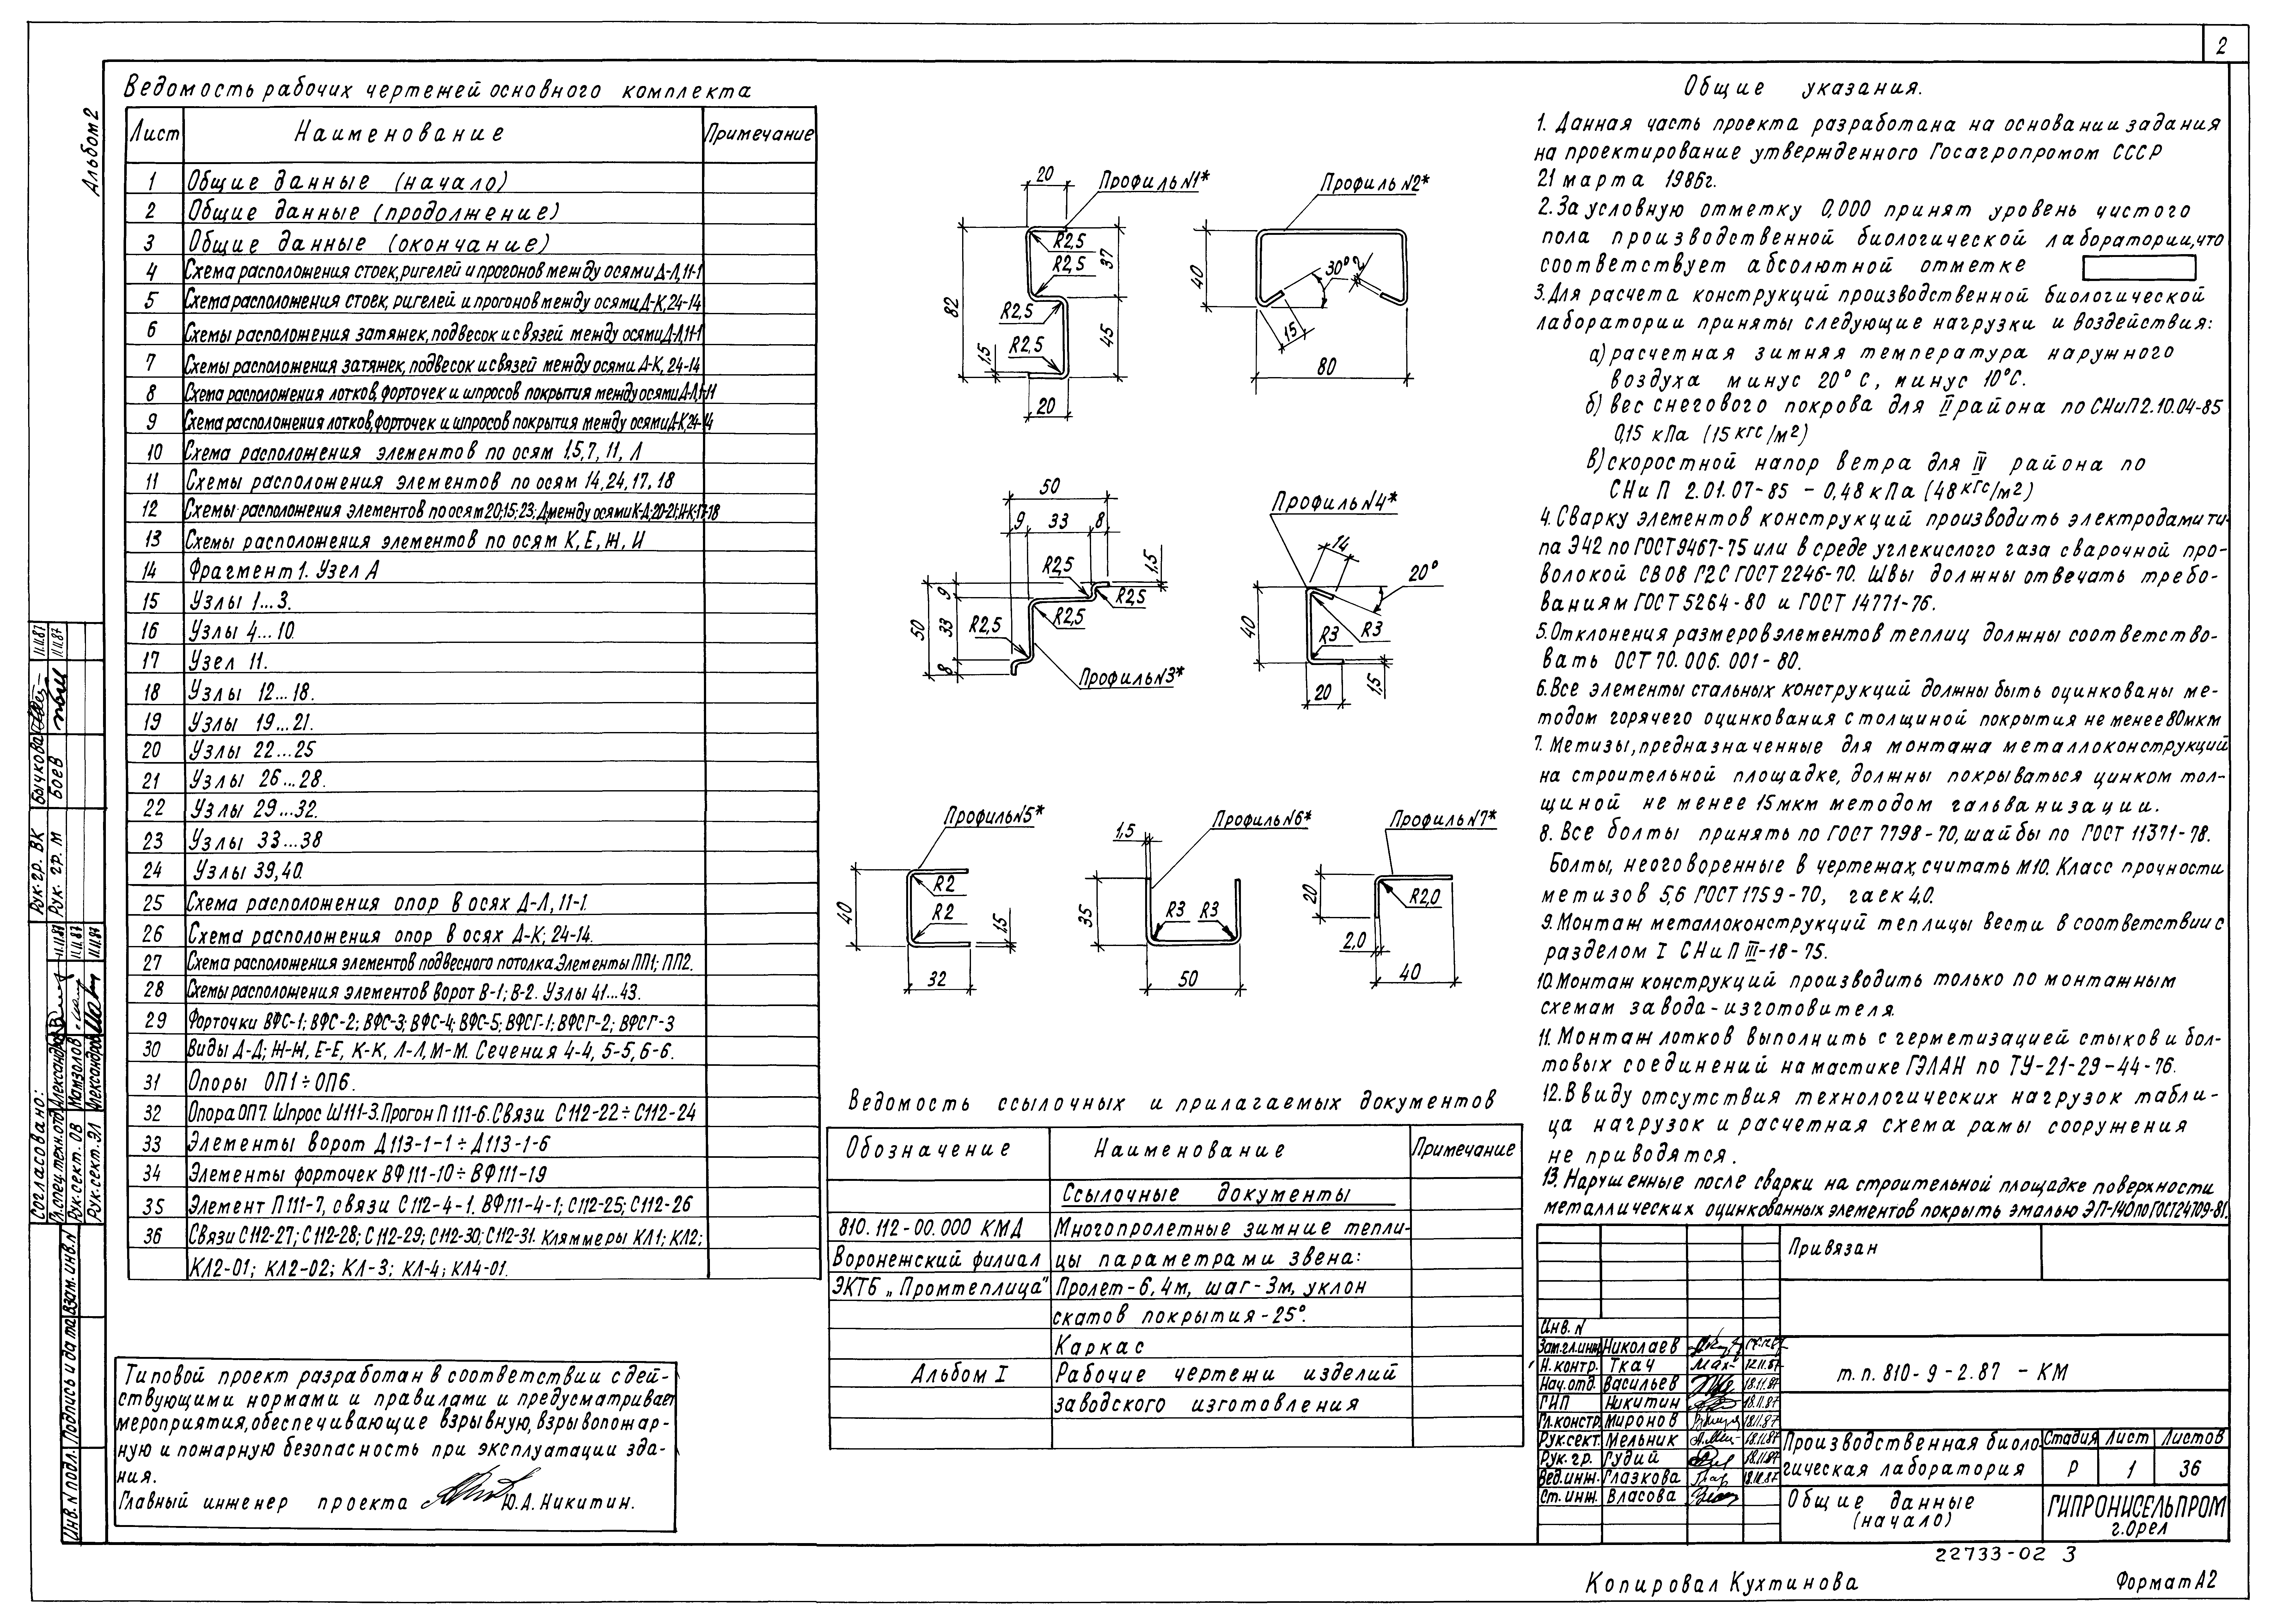 2
Альбом 2
Ведомость рабочих чертежей основного комплекта
Лист Наименование Примечание
1 Общие данные (начало)
2 Общие данные (продолжение)
3 Общие данные (окончание)
4 Схема расположения стоек, ригелей и прогонов между осями Д-Л, 11-1
5 Схема расположения стоек, ригелей и прогонов между осями Д-К, 24-14
6 Схемы расположения затяжек, подвесок и связей между осями Д-Л, 11-1
7 Схемы расположения затяжек, подвесок и связей между осями Д-К, 24-14
8 Схема расположения лотков, форточек и шпросов покрытия между осями Д-Л, 1-11
9 Схема расположения лотков, форточек и шпросов покрытия между осями Д-К, 24-14
10 Схема расположения элементов по осям 1.5, 7, 11, Л
11 Схемы расположения элементов по осям 14, 24, 17, 18
12 Схемы расположения элементов по осям 20; 15; 23; Д; между осями К-Д; 20-21; И-К; 17-18
13 Схемы расположения элементов по осям К, Е, Ж, И
14 Фрагмент 1. Узел А
15 Узлы 1...3.
16 Узлы 4...10.
17 Узел 11.
18 Узлы 12...18.
19 Узлы 19...21.
20 Узлы 22...25
21 Узлы 26...28.
22 Узлы 29...32.
23 Узлы 33...38
24 Узлы 39, 40.
25 Схема расположения опор в осях Д-Л, 11-1.
26 Схема расположения опор в осях Д-К; 24-14.
27 Схема расположения элементов подвесного потолка. Элементы ПП1; ПП2.
28 Схемы расположения элементов ворот В-1; В-2. Узлы 41...43.
29 Форточки ВФС-1; ВФС-2; ВФС-3; ВФС-4; ВФС-5; ВФСГ-1; ВФСГ-2; ВФСГ-3
30 Виды Д-Д; Ж-Ж, Е-Е, К-К, Л-Л, М-М. Сечения 4-4, 5-5, 6-6.
31 Опоры ОП1÷ОП6.
32 Опора ОП7. Шпрос Ш111-3. Прогон П 111-6. Связи С112-22÷С112-24
33 Элементы ворот Д113-1-1÷Д113-1-6
34 Элементы форточек ВФ111-10÷ВФ111-19
35 Элемент П111-7, связи С112-4-1. ВФ111-4-1; С112-25; С112-26
36 Связи С112-27; С112-28; С112-29; С112-30; С112-31. Кляммеры КЛ1; КЛ2;
КЛ2-01; КЛ2-02; КЛ-3; КЛ-4; КЛ4-01.
Типовой проект разработан в соответствии с дей-
ствующими нормами и правилами и предусматривает
мероприятия, обеспечивающие взрывную, взрывопожар-
ную и пожарную безопасность при эксплуатации зда-
ния.
Главный инженер проекта Ю.А. Никитин.
Профиль N1*
20
R2,5
R2,5
R2,5
R2,5
82
37
45
1,5
20
Профиль N2*
40
30°
2
15
80
50
9 33 8
1,5
R2,5
R2,5
R2,5
R2,5
9
33
8
50
Профиль N3*
Профиль N4*
14
20°
40
R3
R3
20
1,5
Профиль N5*
R2
R2
40
1,5
32
Профиль N6*
1,5
35
R3 R3
50
Профиль N7*
20
R2,0
2,0
40
Ведомость ссылочных и прилагаемых документов
Обозначение Наименование Примечание
Ссылочные документы
810.112-00.000 КМД Многопролетные зимние тепли-
Воронежский филиал цы параметрами звена:
ЭКТБ „Промтеплица" Пролет-6,4м, шаг-3м, уклон
скатов покрытия-25°.
Каркас
Альбом I Рабочие чертежи изделий
заводского изготовления
Общие указания.
1. Данная часть проекта разработана на основании задания
на проектирование утвержденного Госагропромом СССР
21 марта 1986г.
2. За условную отметку 0,000 принят уровень чистого
пола производственной биологической лаборатории, что
соответствует абсолютной отметке
3. Для расчета конструкций производственной биологической
лаборатории приняты следующие нагрузки и воздействия:
а) расчетная зимняя температура наружного
воздуха минус 20°С, минус 10°С.
б) вес снегового покрова для II района по СНиП 2.10.04-85
0,15 кПа (15 кгс/м2)
в) скоростной напор ветра для IV района по
СНиП 2.01.07-85 - 0,48 кПа (48 кгс/м2)
4. Сварку элементов конструкций производить электродами ти-
па Э42 по ГОСТ 9467-75 или в среде углекислого газа сварочной про-
волокой СВ08 Г2С ГОСТ 2246-70. Швы должны отвечать требо-
ваниям ГОСТ 5264-80 и ГОСТ 14771-76.
5. Отклонения размеров элементов теплиц должны соответство-
вать ОСТ 70.006.001-80.
6. Все элементы стальных конструкций должны быть оцинкованы ме-
тодом горячего оцинкования с толщиной покрытия не менее 80мкм
7. Метизы, предназначенные для монтажа металлоконструкций
на строительной площадке, должны покрываться цинком тол-
щиной не менее 15 мкм методом гальванизации.
8. Все болты принять по ГОСТ 7798-70, шайбы по ГОСТ 11371-78.
Болты, неоговоренные в чертежах, считать М10. Класс прочности
метизов 5,6 ГОСТ 1759-70, гаек 4.0.
9. Монтаж металлоконструкций теплицы вести в соответствии с
разделом I СНиП III-18-75.
10. Монтаж конструкций производить только по монтажным
схемам завода-изготовителя.
11. Монтаж лотков выполнить с герметизацией стыков и бол-
товых соединений на мастике ГЭЛАН по ТУ-21-29-44-76.
12. В виду отсутствия технологических нагрузок табли-
ца нагрузок и расчетная схема рамы сооружения
не приводятся.
13. Нарушенные после сварки на строительной площадке поверхности
металлических оцинкованных элементов покрыть эмалью ЭП-140 по ГОСТ 24709-81.
Привязан
Инв. N
Зам.гл.инж. Николаев
Н.контр. Ткач 12.11.87
Нач.отд. Васильев 18.11.87
ГИП Никитин 18.11.87
Гл.констр. Миронов 18.11.87
Рук.сект. Мельник 18.11.87
Рук.гр. Гудий 18.11.87
Вед.инж. Глазкова
Ст.инж. Власова
т.п. 810-9-2.87 - КМ
Производственная биоло-
гическая лаборатория
Стадия Лист Листов
Р 1 36
Общие данные
(начало)
ГИПРОНИСЕЛЬПРОМ
г.Орел
22733-02 3
Копировал Кухтинова
Формат А2
Согласовано:
Гл.спец.техн.отд. Александров 11.11.87
Рук.сект. ОВ Мамзолов 11.11.87
Рук.сект. ЭЛ Александров 11.11.87
Рук.гр. ВК Бычкова 11.11.87
Рук. гр. М Боев 11.11.87
Инв. N подл. Подпись и дата Взам.инв.N